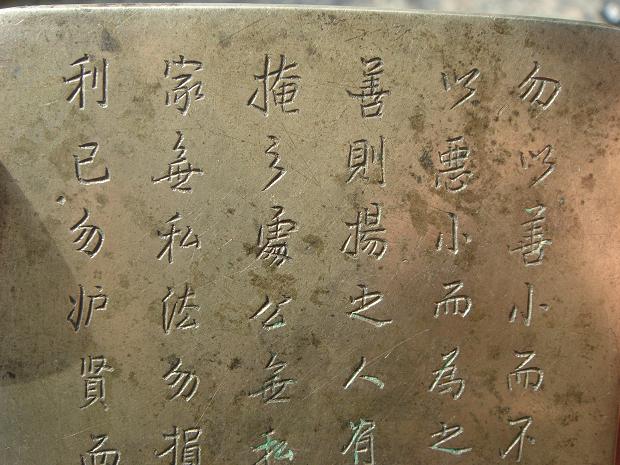 勿以善小而不
以悪小而為之
善則揚之人有
掩之處公無私
家無私法勿損
利己勿妒賢而